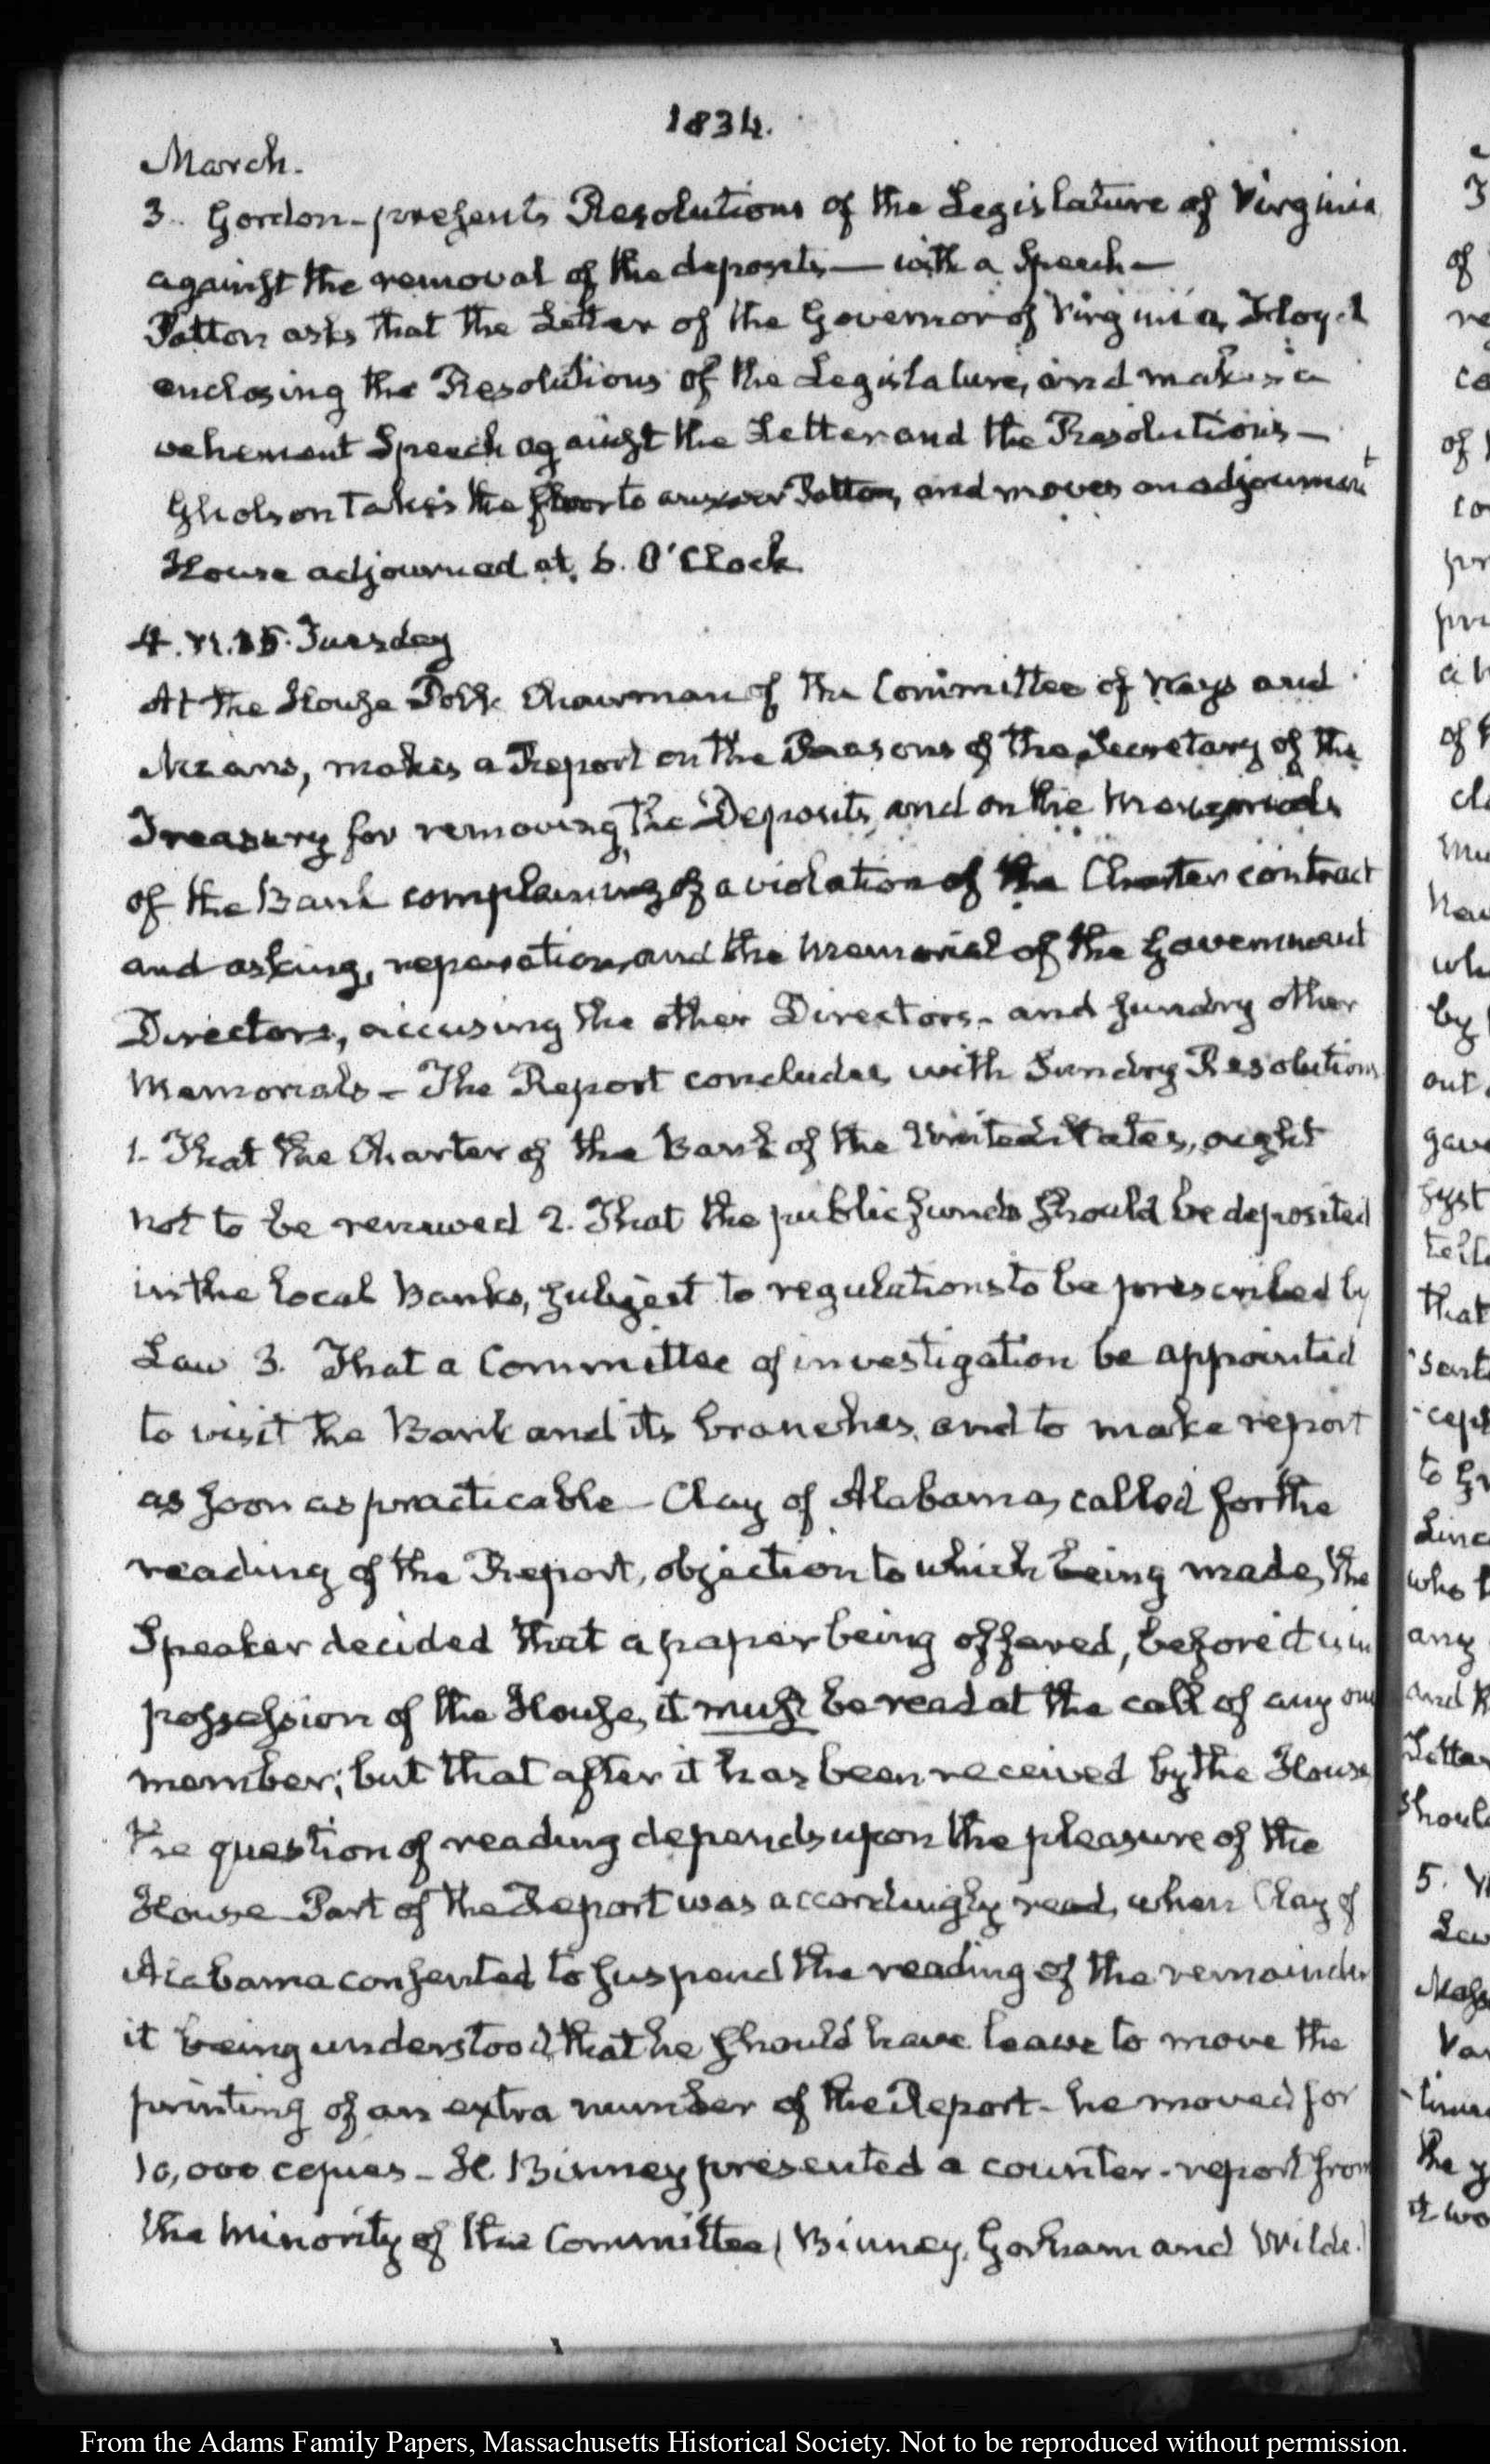 1834.
March.
3. Gordon - presents Resolutions of the Legislature of Virginia
against the removal of the deposits — with a Speech —
Patton asks that the Letter of the Governor of Virginia, Floyd
enclosing the Resolutions of the Legislature, and makes a
vehement Speech against the Letter and the Resolutions —
Gholson takes the floor to answer Patton, and moves an adjournment
House adjourned at 5. O'Clock
4. VI. 15. Tuesday
At the House Polk Chairman of the Committee of Ways and
Means, makes a Report on the Reasons of the Secretary of the
Treasury for removing the Deposits, and on the Memorials
of the Bank complaining of a violation of the Charter contract
and asking, reparation, and the memorial of the Government
Directors, accusing the other Directors - and sundry other
Memorials - The Report concludes with Sundry Resolutions
1. That the Charter of the Bank of the United States, ought
not to be renewed 2. That the public funds should be deposited
in the local Banks, subject to regulations to be prescribed by
Law 3. That a Committee of investigation be appointed
to visit the Bank and its branches, and to make report
as soon as practicable - Clay of Alabama, called for the
reading of the Report, objection to which being made, the
Speaker decided that a paper being offered, before it is in
possession of the House, it must be read at the call of any one
member; but that after it has been received by the House
the question of reading depends upon the pleasure of the
House Part of the Report was accordingly read, when Clay of
Alabama consented to suspend the reading of the remainder
it being understood that he should have leave to move the
printing of an extra number of the Report - he moved for
10,000 copies - H. Binney presented a counter-report from
the Minority of the Committee (Binney, Gorham and Wilde.)
T
of
re
co
of
co
pr
pri
a
of
cl
mu
New
wh
by
out
gave
syst
tell
that
sent
cept
to
Linc
who
any
and
Letter
should
5. VI
Lew
Mass
Va
time
the y
it wo
From the Adams Family Papers, Massachusetts Historical Society. Not to be reproduced without permission.